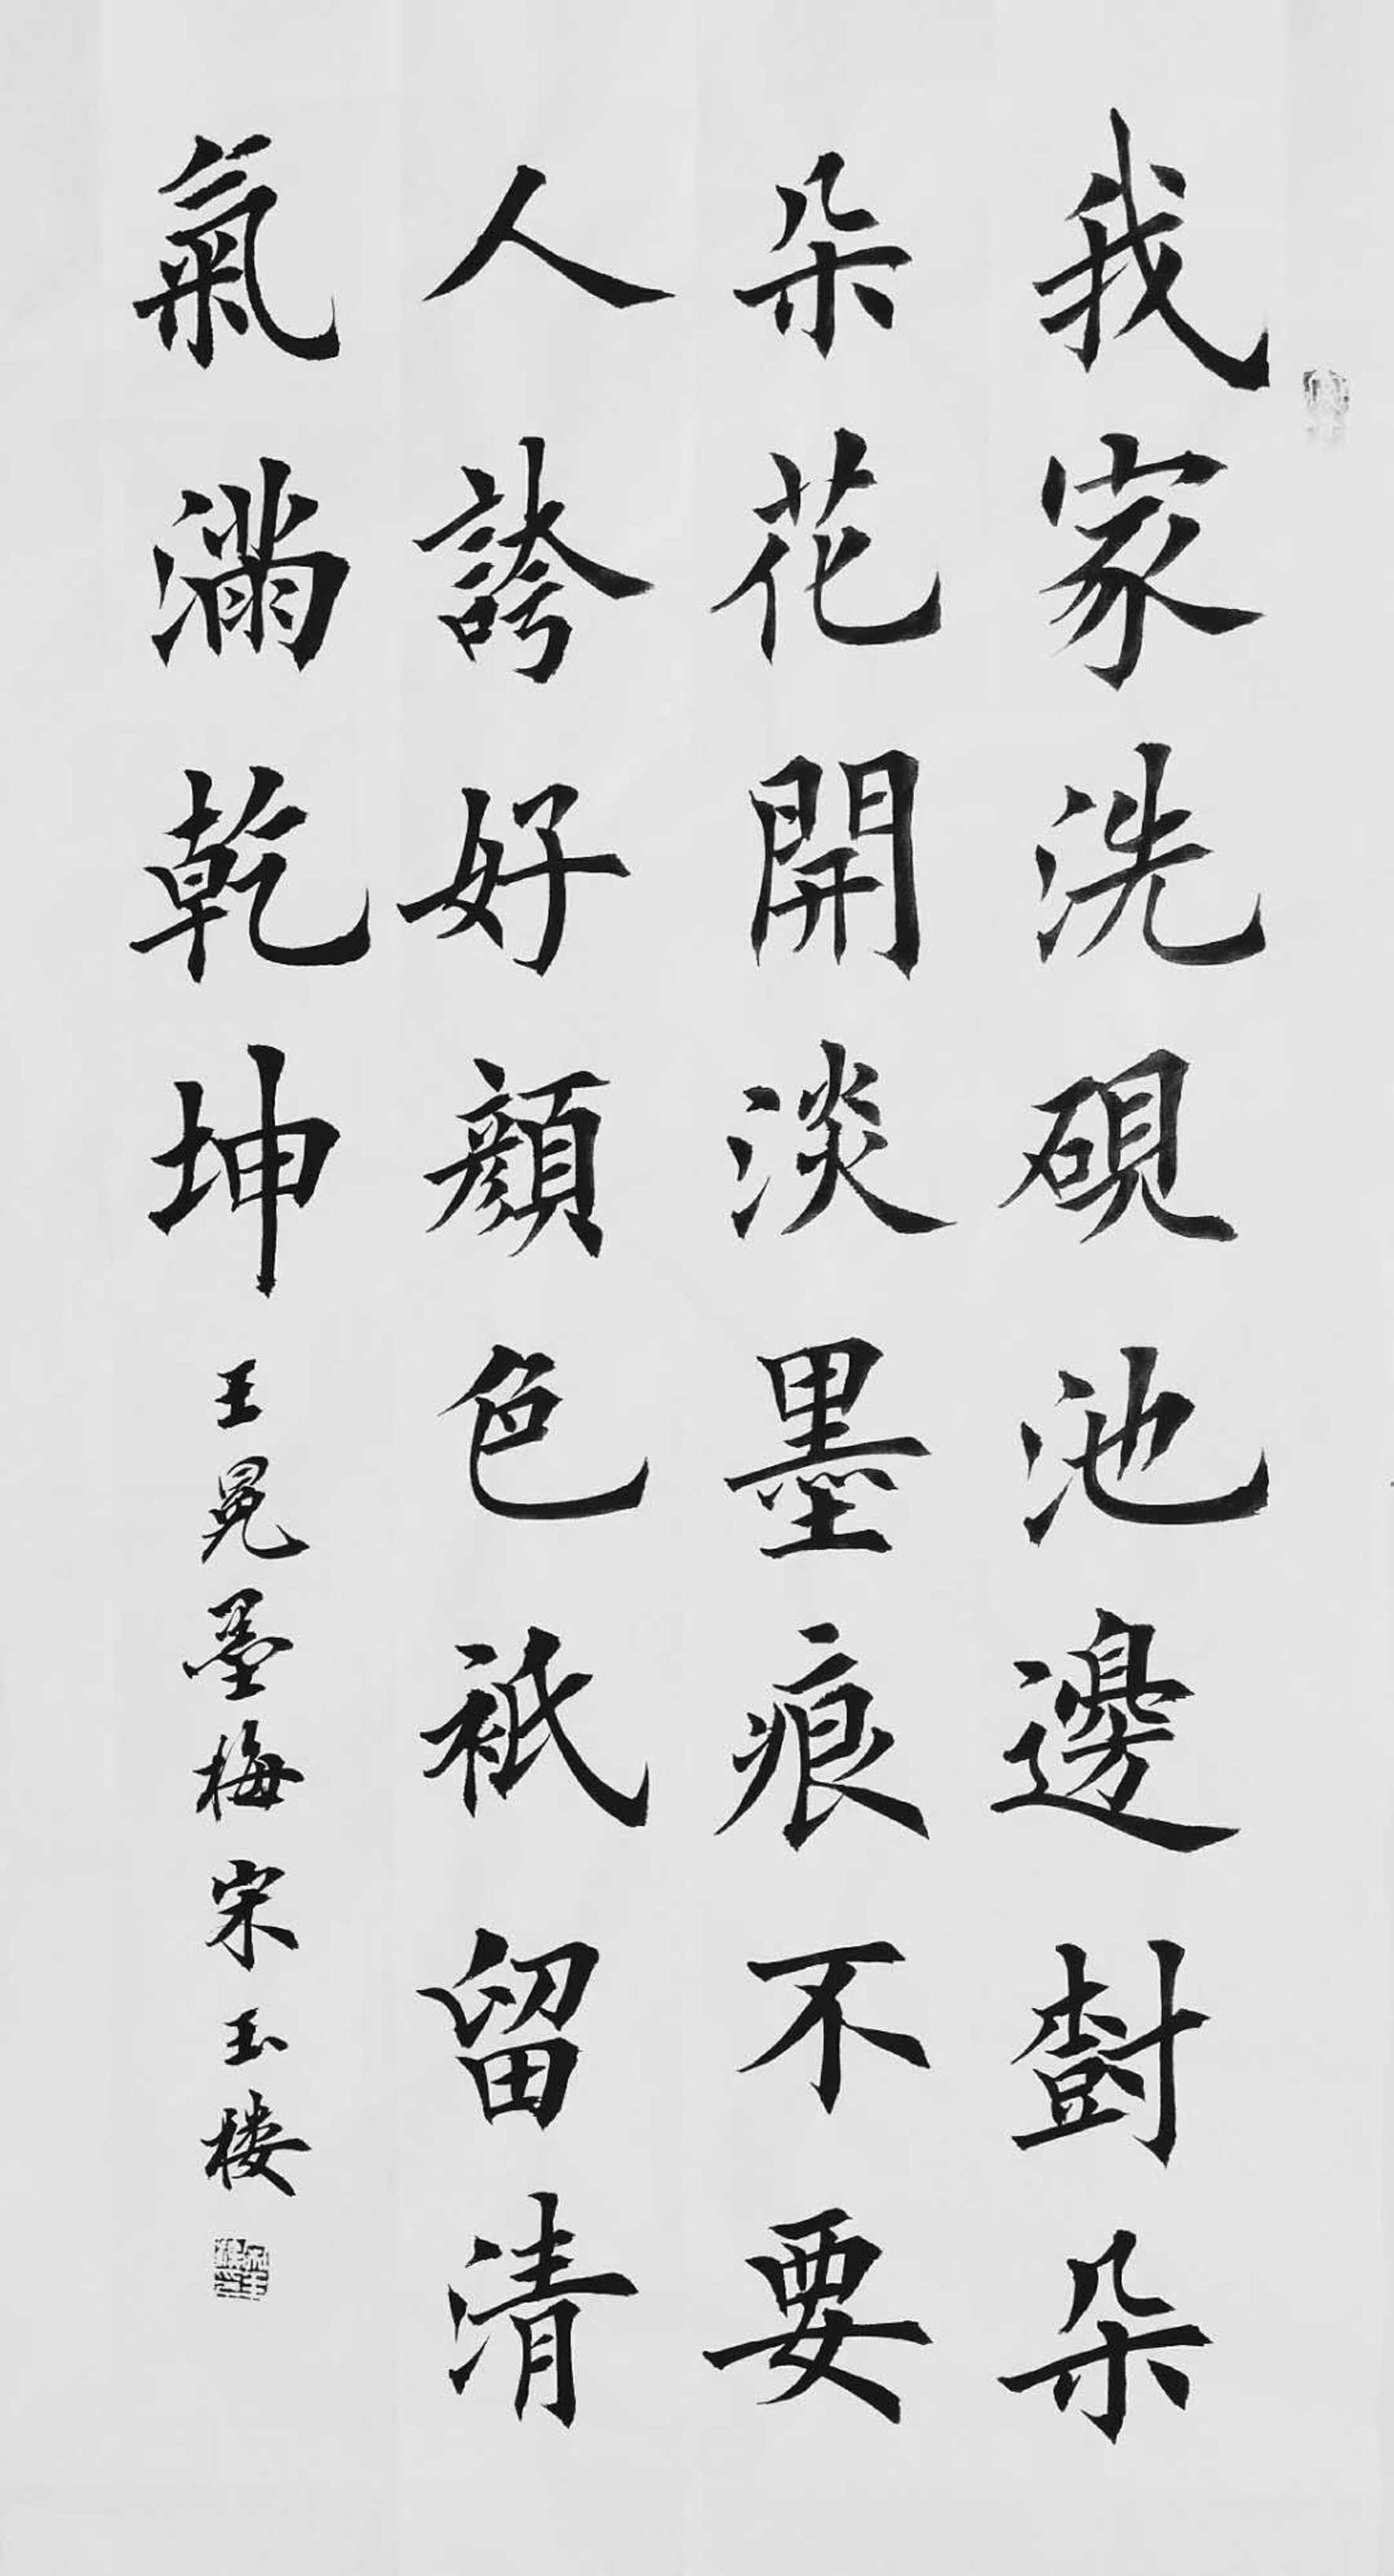 我家洗硯池邊樹朶
朶花開淡墨痕不要
人誇好顏色祇留清
氣滿乾坤 王冕墨梅 宋玉楼